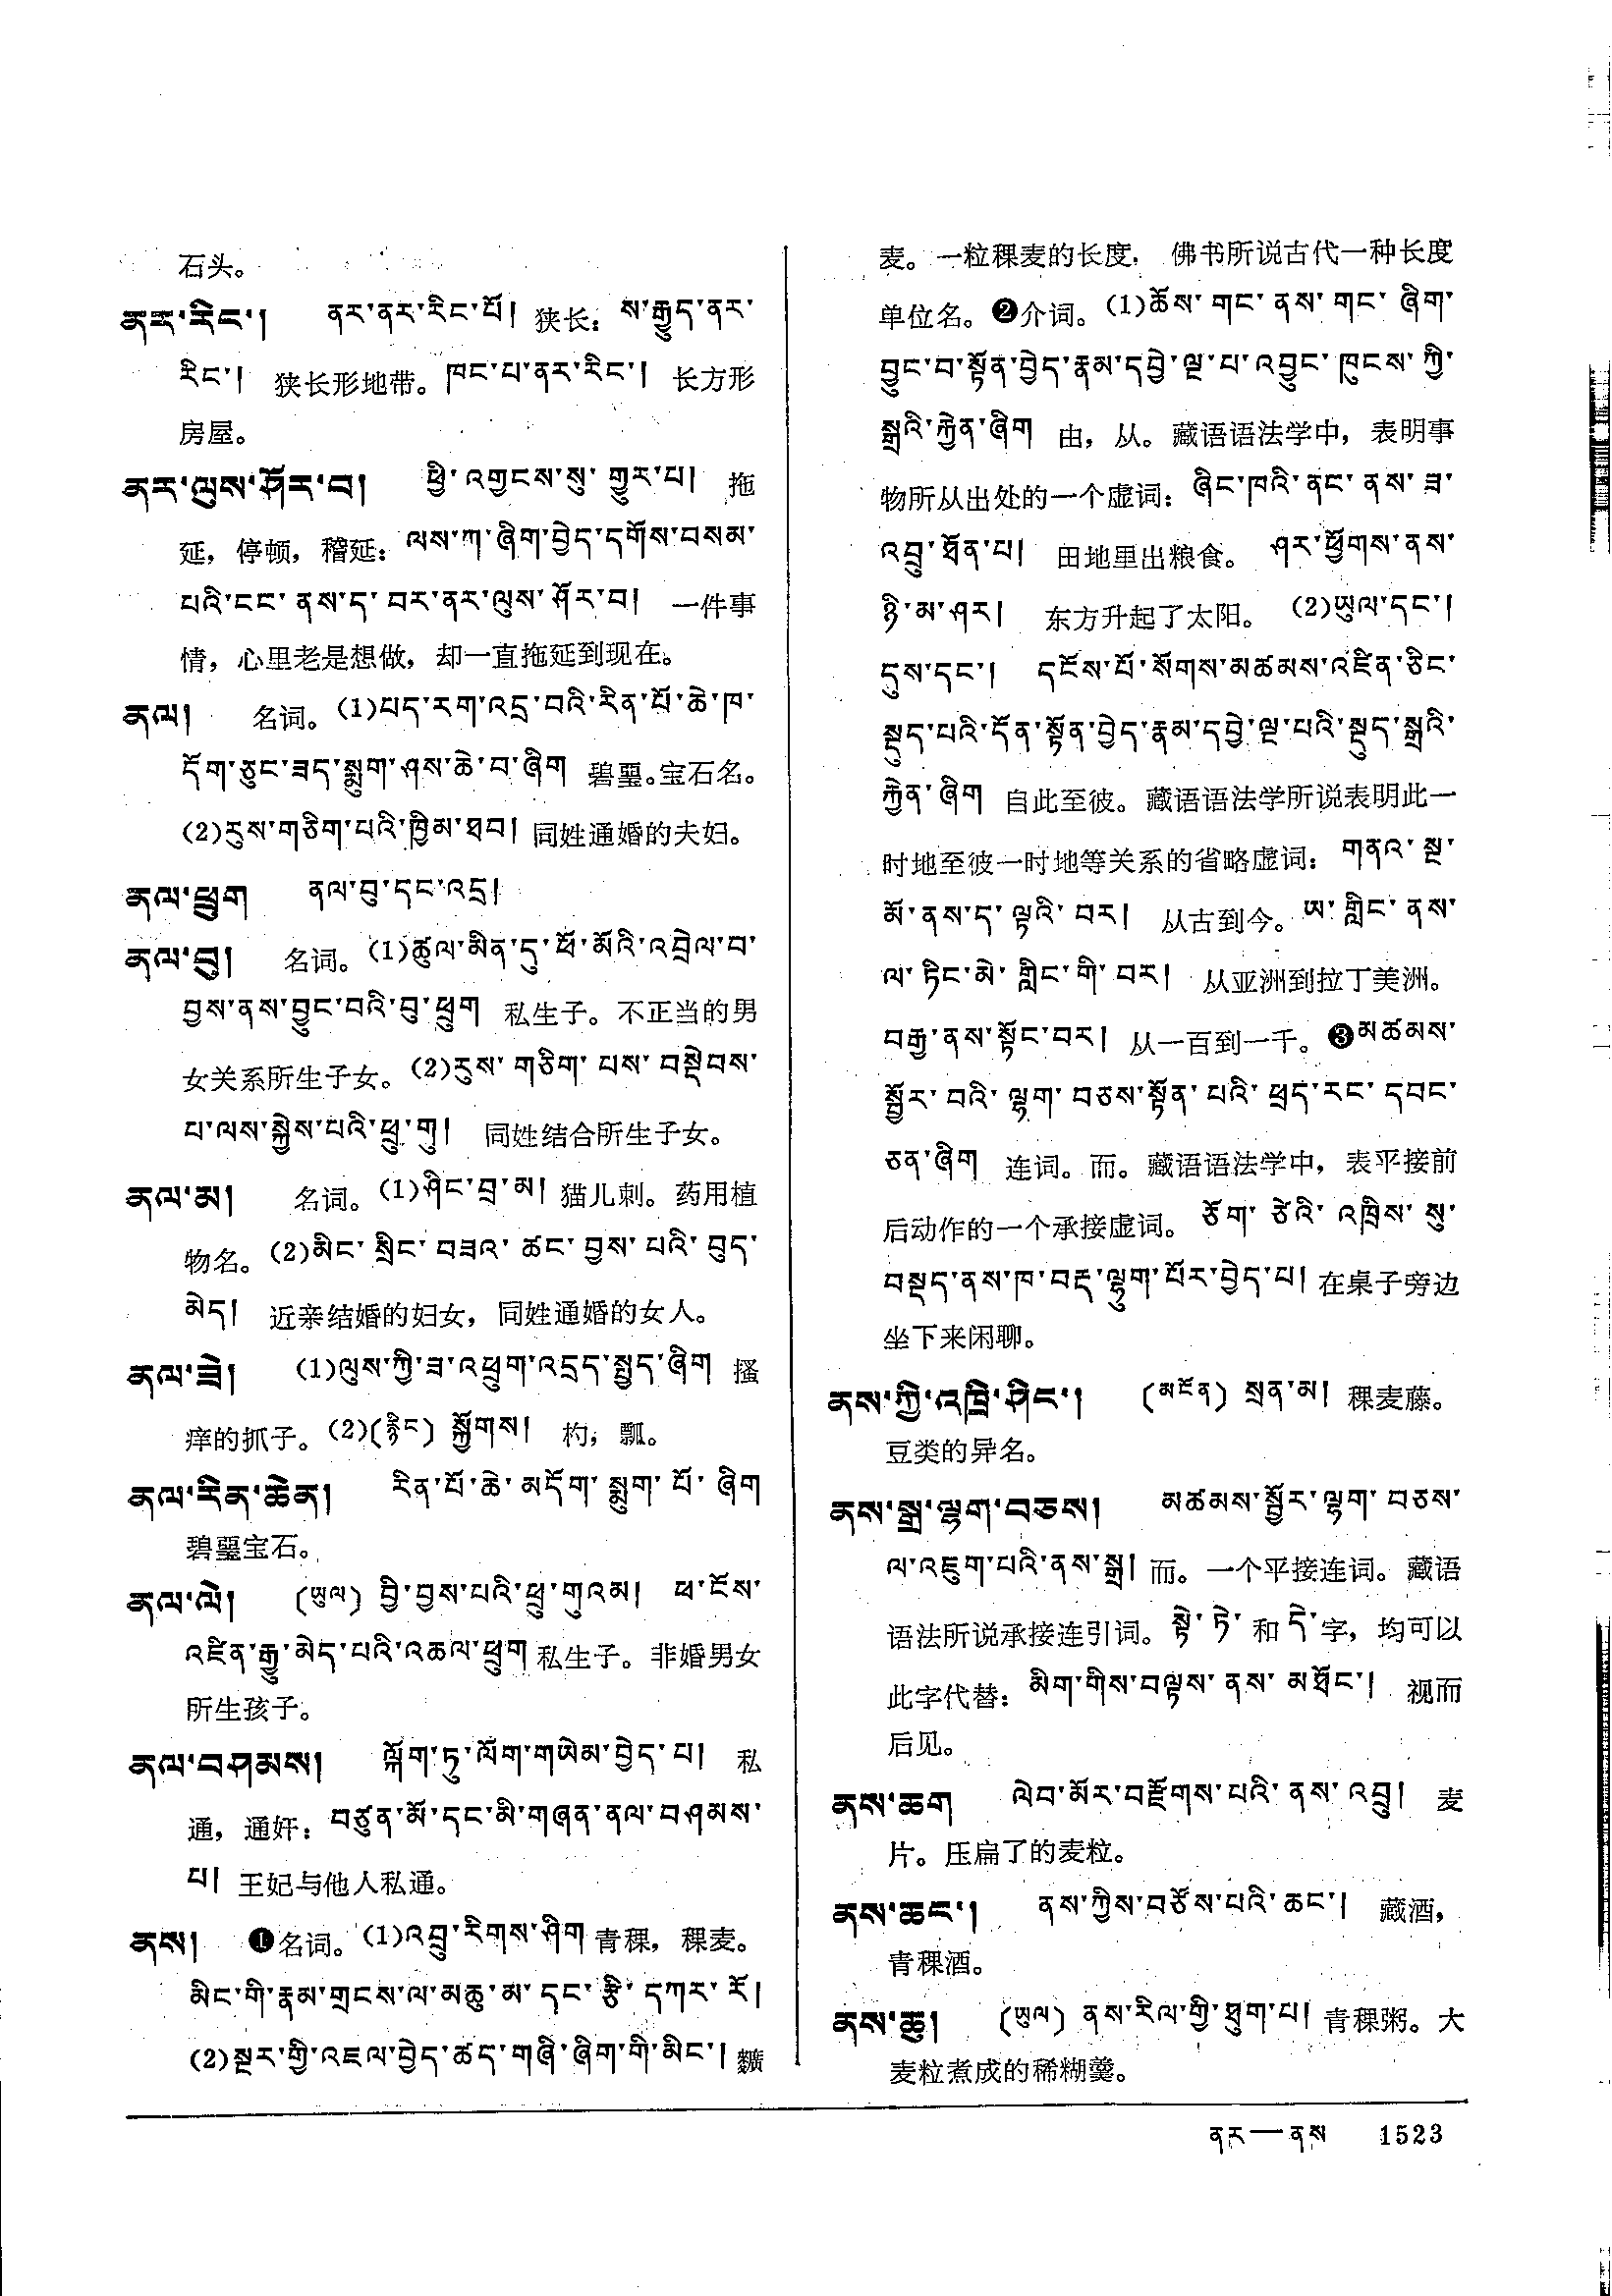 石头。
ནར་རིང་། ནར་ནར་རིང་པོ། 狭长：ས་རྒྱུད་ནར་
རིང་། 狭长形地带。ཁང་པ་ནར་རིང་། 长方形
房屋。
ནར་ལུས་ཤོར་བ། ཕྱི་འགྱངས་སུ་གྱུར་པ། 拖
延，停顿，稽延：ལས་ཀ་ཞིག་བྱེད་དགོས་བསམ་
པའི་ངང་ནས་ད་བར་ནར་ལུས་ཤོར་བ། 一件事
情，心里老是想做，却一直拖延到现在。
ནལ། 名词。(1)པད་རག་འདྲ་བའི་རིན་པོ་ཆེ་ཁ་
དོག་ཅུང་ཟད་སྨུག་ཤས་ཆེ་བ་ཞིག 碧玺。宝石名。
(2)རུས་གཅིག་པའི་ཁྱིམ་ཐབ། 同姓通婚的夫妇。
ནལ་ཕྲུག ནལ་བུ་དང་འདྲ།
ནལ་བུ། 名词。(1)ཚུལ་མིན་དུ་ཕོ་མོའི་འབྲེལ་བ་
བྱས་ནས་བྱུང་བའི་བུ་ཕྲུག 私生子。不正当的男
女关系所生子女。(2)རུས་གཅིག་པས་བསྡེབས་
པ་ལས་སྐྱེས་པའི་ཕྲུ་གུ། 同姓结合所生子女。
ནལ་མ། 名词。(1)ཤིང་བྲ་མ། 猫儿刺。药用植
物名。(2)མིང་སྲིང་བཟའ་ཚང་བྱས་པའི་བུད་
མེད། 近亲结婚的妇女，同姓通婚的女人。
ནལ་ཟེ། (1)ལུས་ཀྱི་ཟ་འཕྲུག་འདྲད་སྤྱད་ཞིག 搔
痒的抓子。(2)(རྙིང) སྐྱོགས། 杓，瓢。
ནལ་རིན་ཆེན། རིན་པོ་ཆེ་མདོག་སྨུག་པོ་ཞིག
碧玺宝石。
ནལ་ལེ། (ཡུལ) བྱི་བྱས་པའི་ཕྲུ་གུའམ། ཕ་ངོས་
འཛིན་རྒྱུ་མེད་པའི་འཆལ་ཕྲུག 私生子。非婚男女
所生孩子。
ནལ་བཤམས། ལྐོག་ཏུ་ལོག་གཡེམ་བྱེད་པ། 私
通，通奸：བཙུན་མོ་དང་མི་གཞན་ནལ་བཤམས་
པ། 王妃与他人私通。
ནས། ❶名词。(1)འབྲུ་རིགས་ཤིག 青稞，稞麦。
མིང་གི་རྣམ་གྲངས་ལ་མཆུ་མ་དང་རྩི་དཀར་རོ།
(2)སྔར་གྱི་འཇལ་བྱེད་ཚད་གཞི་ཞིག་གི་མིང་། 䵃
麦。一粒稞麦的长度， 佛书所说古代一种长度
单位名。❷介词。(1)ཆོས་གང་ནས་གང་ཞིག་
བྱུང་བ་སྟོན་བྱེད་རྣམ་དབྱེ་ལྔ་པ་འབྱུང་ཁུངས་ཀྱི་
སྒྲའི་རྐྱེན་ཞིག 由，从。藏语语法学中，表明事
物所从出处的一个虚词：ཞིང་ཁའི་ནང་ནས་ཟ་
འབྲུ་ཐོན་པ། 田地里出粮食。 ཤར་ཕྱོགས་ནས་
ཉི་མ་ཤར། 东方升起了太阳。 (2)ཡུལ་དང་།
དུས་དང་། དངོས་པོ་སོགས་མཚམས་འཛིན་ཅིང་
སྡུད་པའི་དོན་སྟོན་བྱེད་རྣམ་དབྱེ་ལྔ་པའི་སྡུད་སྒྲའི་
རྐྱེན་ཞིག 自此至彼。藏语语法学所说表明此一
时地至彼一时地等关系的省略虚词：གནའ་སྔ་
མོ་ནས་ད་ལྟའི་བར། 从古到今。ཨ་གླིང་ནས་
ལ་ཏིང་མེ་གླིང་གི་བར། 从亚洲到拉丁美洲。
བརྒྱ་ནས་སྟོང་བར། 从一百到一千。❸མཚམས་
སྦྱོར་བའི་ལྷག་བཅས་སྟོན་པའི་ཕྲད་རང་དབང་
ཅན་ཞིག 连词。而。藏语语法学中，表平接前
后动作的一个承接虚词。ཅོག་ཙེའི་འཁྲིས་སུ་
བསྡད་ནས་ཁ་བརྡ་ལྷུག་པོར་བྱེད་པ། 在桌子旁边
坐下来闲聊。
ནས་ཀྱི་འཁྲི་ཤིང་། (མངོན) སྲན་མ། 稞麦藤。
豆类的异名。
ནས་སྒྲ་ལྷག་བཅས། མཚམས་སྦྱོར་ལྷག་བཅས་
ལ་འཇུག་པའི་ནས་སྒྲ། 而。一个平接连词。藏语
语法所说承接连引词。སྟེ་ཏེ་ 和 དེ་字，均可以
此字代替：མིག་གིས་བལྟས་ནས་མཐོང་། 视而
后见。
ནས་ཆག ལེབ་མོར་བརྫོགས་པའི་ནས་འབྲུ། 麦
片。压扁了的麦粒。
ནས་ཆང་། ནས་ཀྱིས་བཙོས་པའི་ཆང་། 藏酒，
青稞酒。
ནས་ཆུ། (ཡུལ) ནས་རིལ་གྱི་ཐུག་པ། 青稞粥。大
麦粒煮成的稀糊羹。
ནར—ནས 1523